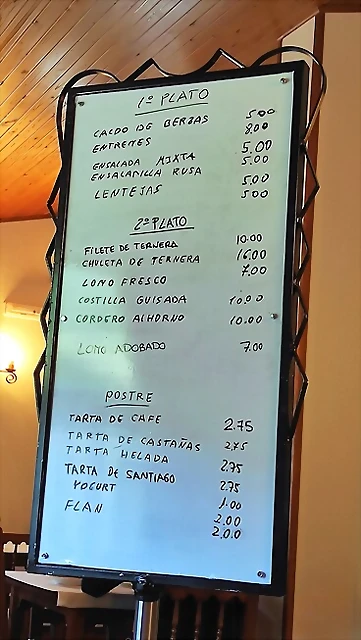 1º PLATO
CALDO DE BERZAS 5.00
ENTREMES 8.00
ENSALADA MIXTA 5.00
ENSALADILLA RUSA 5.00
LENTEJAS 5.00
5.00
2º PLATO
FILETE DE TERNERA 10.00
CHULETA DE TERNERA 16.00
LOMO FRESCO 7.00
COSTILLA GUISADA 10.00
CORDERO ALHORNO 10.00
LOMO ADOBADO 7.00
POSTRE
TARTA DE CAFE 2.75
TARTA DE CASTAÑAS 2.75
TARTA HELADA 2.75
TARTA DE SANTIAGO 2.75
YOGURT 1.00
FLAN 2.00
2.00